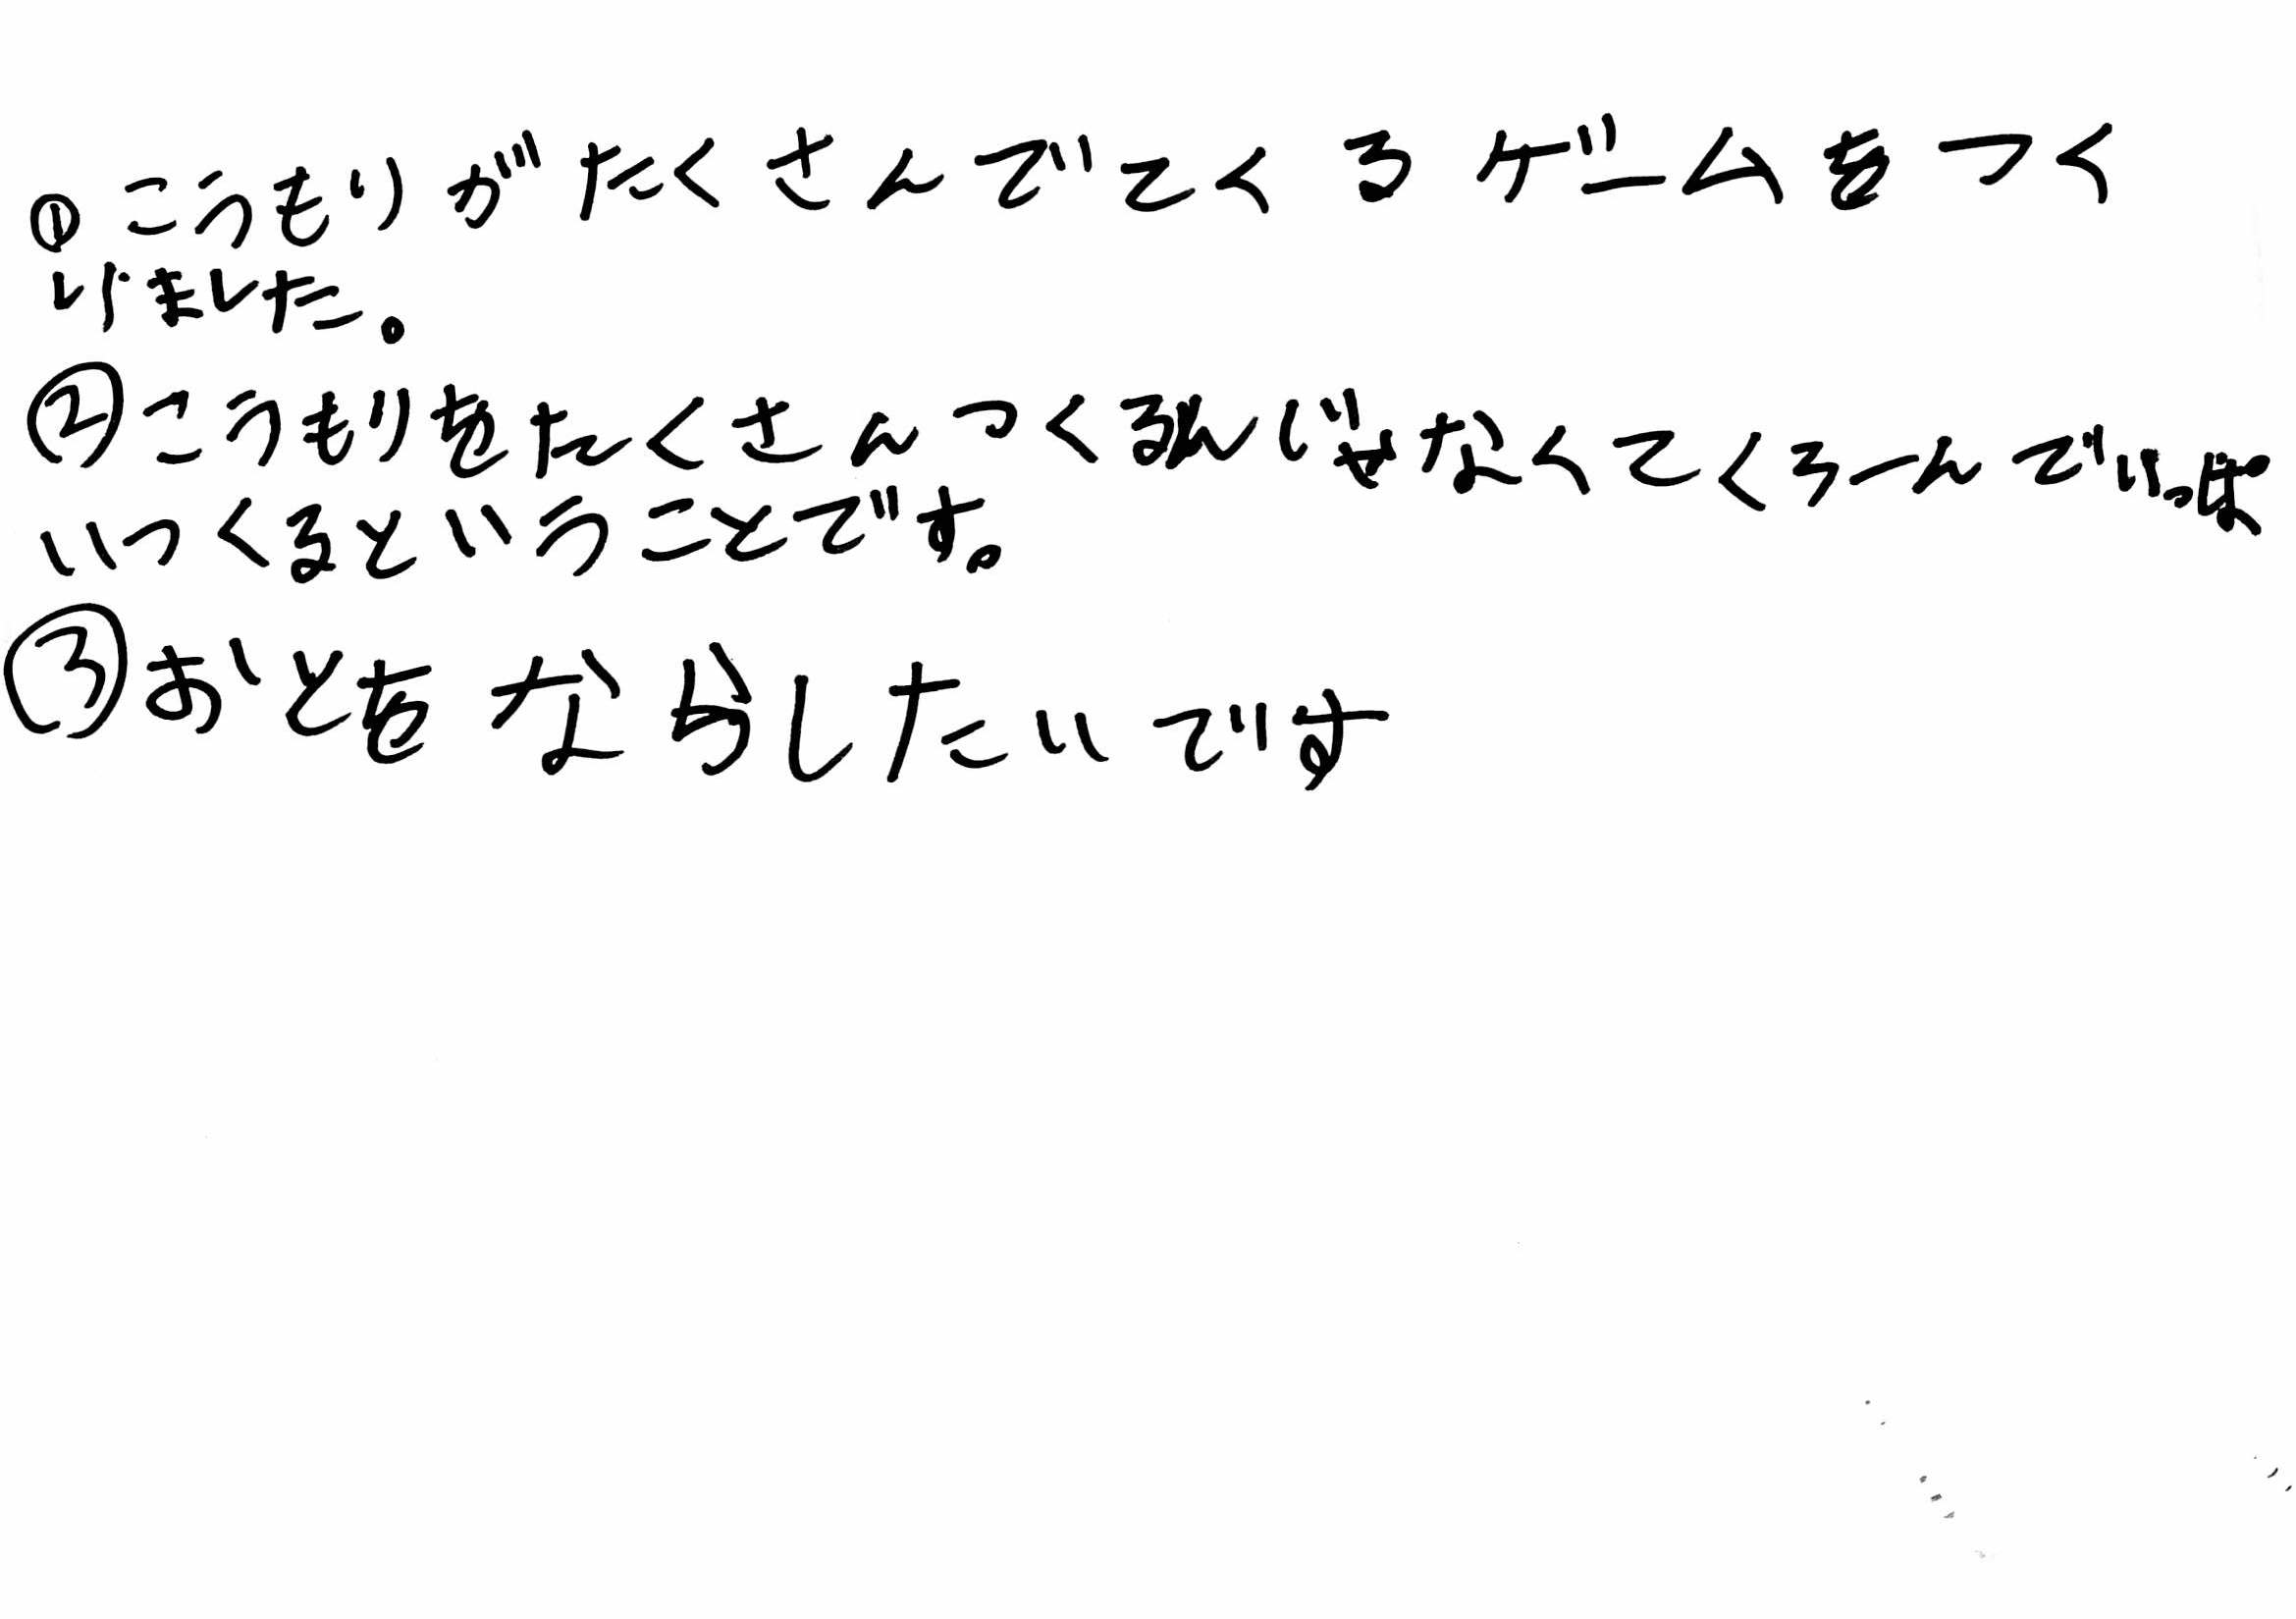 ①こうもりがたくさんでてくるゲームをつく
りました。
②こうもりをたくさんつくるんじゃなくてくろーんでいっぱ
いつくるということです。
③おとをならしたいです